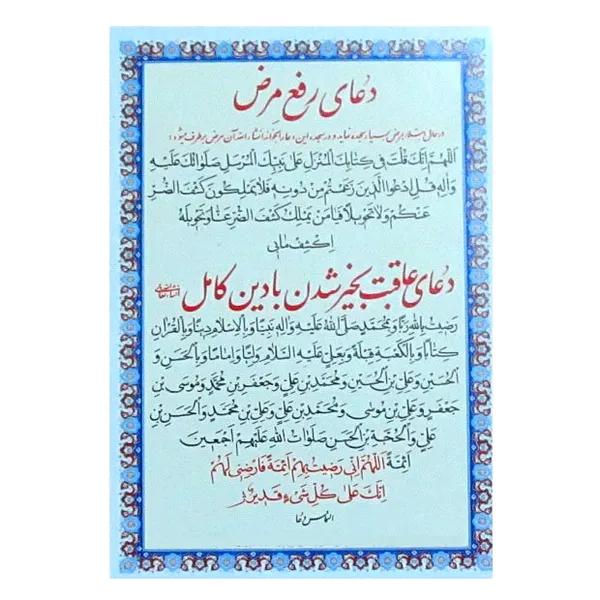 دعای رفع مرض
در حال مبتلا بمرض بسیار سجده نماید و در سجده این دعا را بخواند انشاءالله آن مرض برطرف میشود:
اَللّهُمَّ اِنَّكَ قُلْتَ فی كِتابِكَ الْمُنْزَلِ عَلی نَبِیِّكَ الْمُرْسَلِ صَلَواتُكَ عَلَیْهِ
وَالِهِ قُلِ ادْعُوا الَّذینَ زَعَمْتُمْ مِنْ دُونِهِ فَلا یَمْلِكُونَ كَشْفَ الضُّرِّ
عَنْكُمْ وَلا تَحْویلاً فَیا مَنْ یَمْلِكُ كَشْفَ الضُّرِّ عَنّا وَتَحْویلَهُ
اِكْشِفْ مابی
دعای عاقبت بخیر شدن با دین کامل
رَضیتُ بِاللهِ رَبّاً وَبِمُحَمَّدٍ صَلَّی اللهُ عَلَیْهِ وَالِهِ نَبِیّاً وَبِالْاِسْلامِ دیناً وَبِالْقُرْانِ
كِتاباً وَبِالْكَعْبَةِ قِبْلَةً وَبِعَلِیٍّ عَلَیْهِ السَّلامُ وَلِیّاً وَاِماماً وَبِالْحَسَنِ وَ
الْحُسَیْنِ وَعَلِیِّ بْنِ الْحُسَیْنِ وَمُحَمَّدِ بْنِ عَلِیٍّ وَجَعْفَرِ بْنِ مُحَمَّدٍ وَمُوسَی بْنِ
جَعْفَرٍ وَعَلِیِّ بْنِ مُوسی وَمُحَمَّدِ بْنِ عَلِیٍّ وَعَلِیِّ بْنِ مُحَمَّدٍ وَالْحَسَنِ بْنِ
عَلِیٍّ وَالْحُجَّةِ بْنِ الْحَسَنِ صَلَواتُ اللهِ عَلَیْهِمْ اَجْمَعینَ
اَئِمَّةً اَللّهُمَّ اِنّی رَضیتُ بِهِمْ اَئِمَّةً فَارْضِنی لَهُمْ
اِنَّكَ عَلی كُلِّ شَیْءٍ قَدیرٌ
التماس دعا